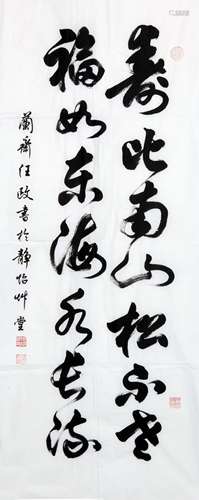 寿比南山松不老
福如东海水长流
兰斋任政书於静怡草堂